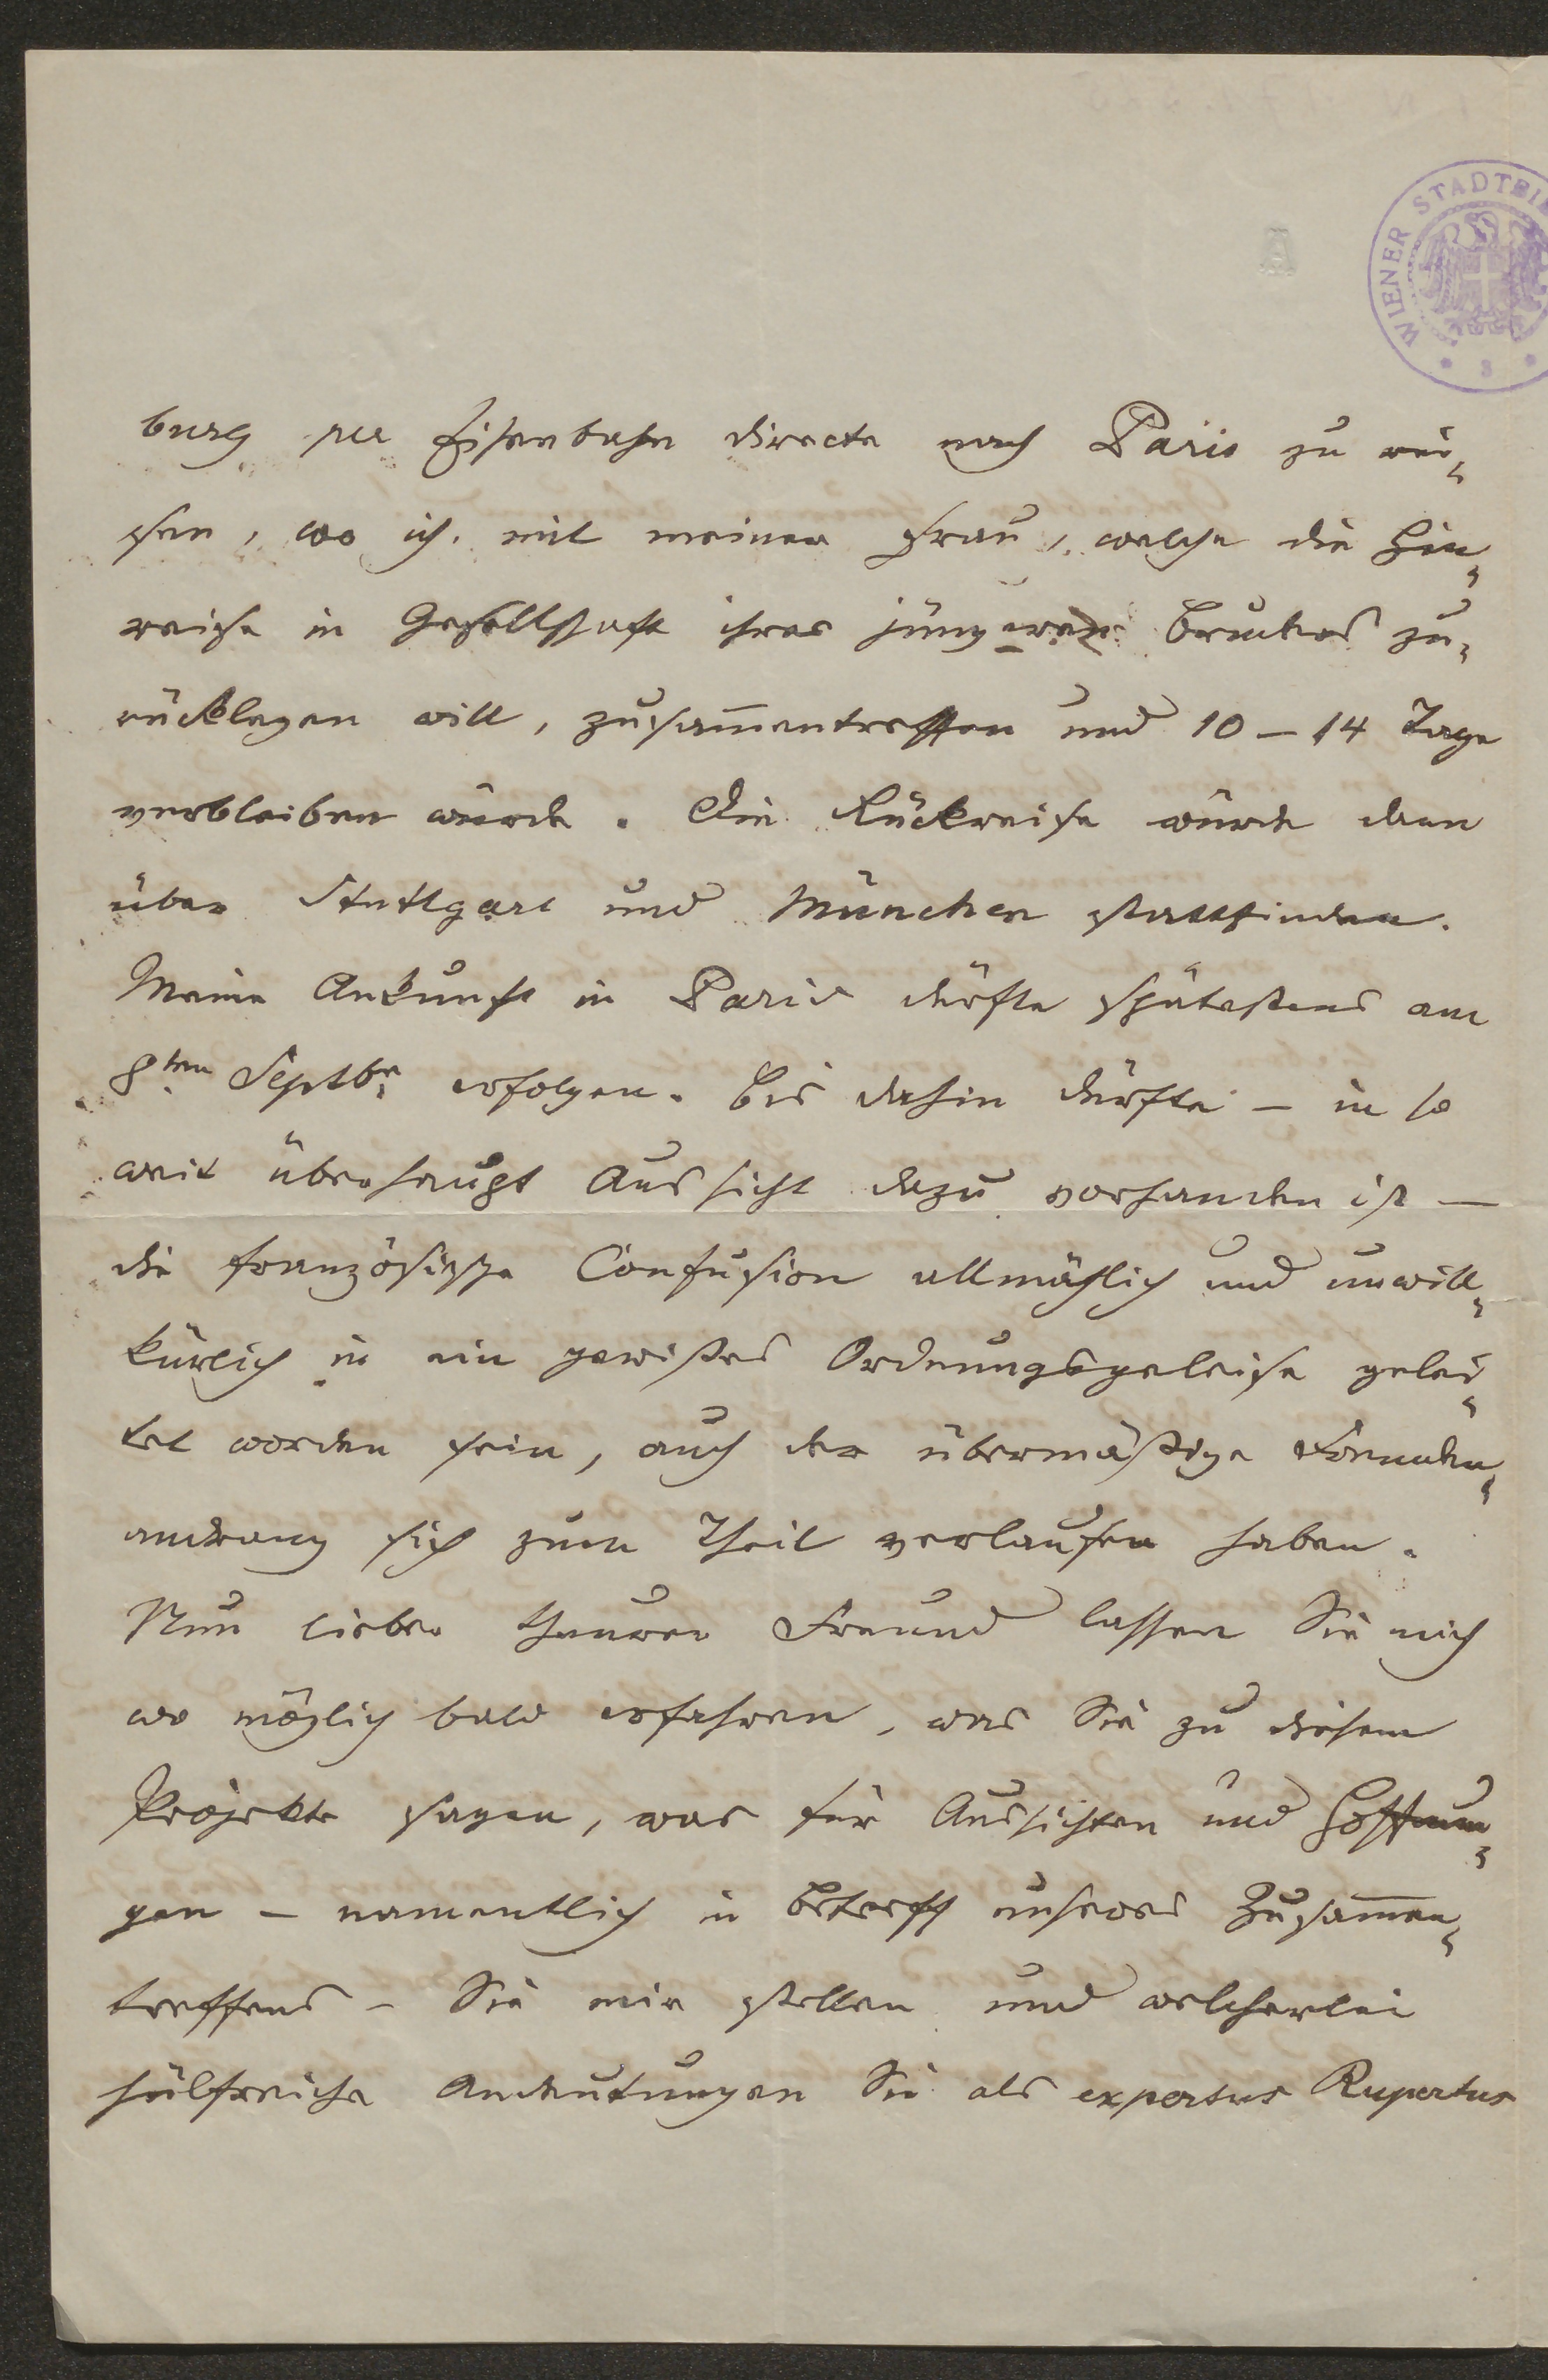 WIENER STADTBI
3
burg per Eisenbahn directe nach Paris zu rei-
sen, wo ich mit meiner Frau, welche die Hin-
reise in Gesellschaft ihres jüngeren Bruders zu-
rücklegen will, zusam̅entreffen und 10 – 14 Tage
verbleiben würde. Die Rückreise würde dann
über Stuttgart und München stattfinden.
Meine Ankunft in Paris dürfte spätestens am
8ten Septbr. erfolgen. Bis dahin dürfte – in so
weit überhaupt Aussicht dazu vorhanden ist –
die französische Confusion allmählich und unwill-
kürlich in ein gewißes Ordnungsgeleise gelei-
tet worden sein, auch der übermäßige Fremden-
andrang sich zum Theil verlaufen haben.
Nun lieber theurer Freund lassen Sie mich
wo möglich bald erfahren, was Sie zu diesem
Projekte sagen, was für Aussichten und Hoffnun-
gen – namentlich in Betreff unseres Zusam̅en-
treffens – Sie mir stellen und welcherlei
hülfreiche Andeutungen Sie als expertus Rupertus